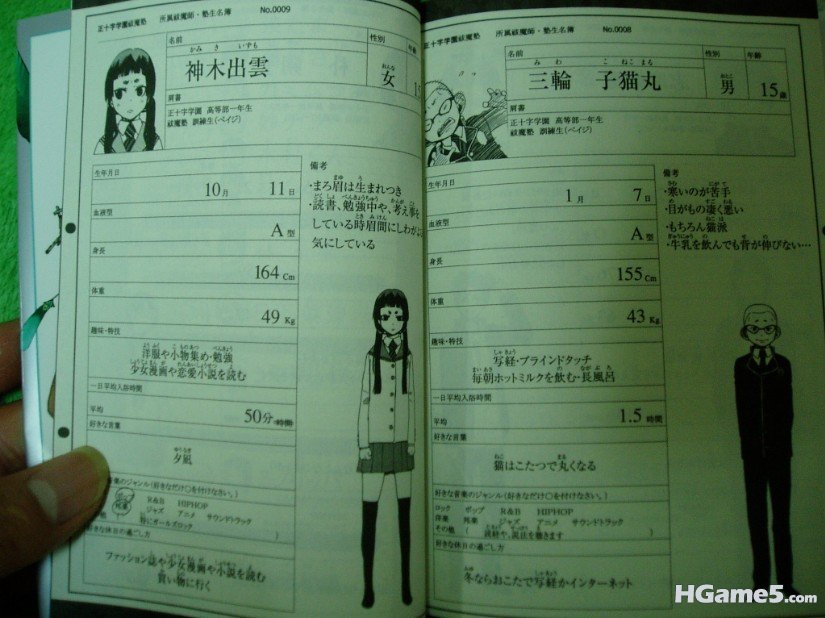 正十字学園祓魔塾　所属祓魔師・塾生名簿　No.0009
名前
かみ き いずも
神木出雲
性別
おんな
女
年齢
肩書
正十字学園 高等部一年生
祓魔塾 訓練生(ペイジ)
生年月日
10月 11日
血液型
A型
身長
164 Cm
体重
49 Kg
趣味・特技
洋服や小物集め・勉強
少女漫画や恋愛小説を読む
一日平均入浴時間
平均 50分 時間
好きな言葉
ゆうなぎ
夕凪
音楽のジャンル(好きなだけ○を付けなさい。)
R&B HIPHOP
ジャズ アニメ サウンドトラック
特にガールズロック
好きな休日の過ごし方
ファッション誌や少女漫画や小説を読む
買い物に行く
備考
・まろ眉は生まれつき
・読書、勉強中や、考え事を
している時眉間にしわがよ
気にしている
正十字学園祓魔塾　所属祓魔師・塾生名簿　No.0008
名前
み わ こ ねこ まる
三輪 子猫丸
性別
おとこ
男
年齢
15歳
肩書
正十字学園 高等部一年生
祓魔塾 訓練生(ペイジ)
生年月日
1月 7日
血液型
A型
身長
155 Cm
体重
43 Kg
趣味・特技
写経・ブラインドタッチ
毎朝ホットミルクを飲む・長風呂
一日平均入浴時間
平均 1.5 時間
好きな言葉
猫はこたつで丸くなる
好きな音楽のジャンル(好きなだけ○を付けなさい。)
ロック ポップ R&B HIPHOP
邦楽 ジャズ アニメ サウンドトラック
その他 ( 読経や、説法を聴きます )
好きな休日の過ごし方
冬ならおこたで写経かインターネット
備考
・寒いのが苦手
・目がもの凄く悪い
・もちろん猫派
・牛乳を飲んでも背が伸びない…
HGame5.com